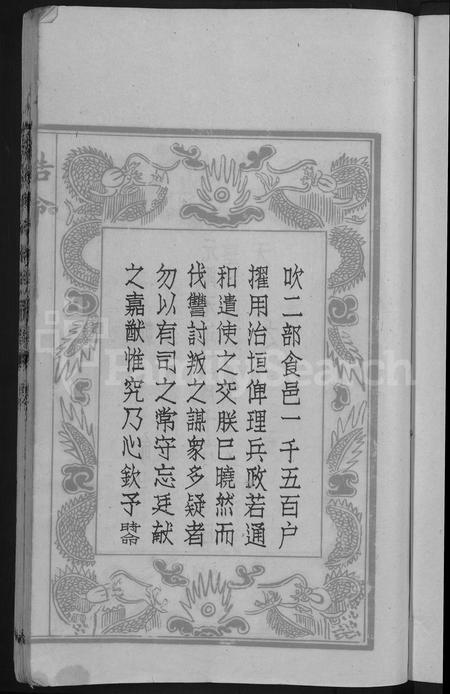 吹二部食邑一千五百户
擢用治垣俾理兵政若通
和遣使之交朕已曉然而
伐讐討叛之謀衆多疑者
勿以有司之常守忘廷献
之嘉猷惟究乃心欽予時命
誥命
FamilySearch